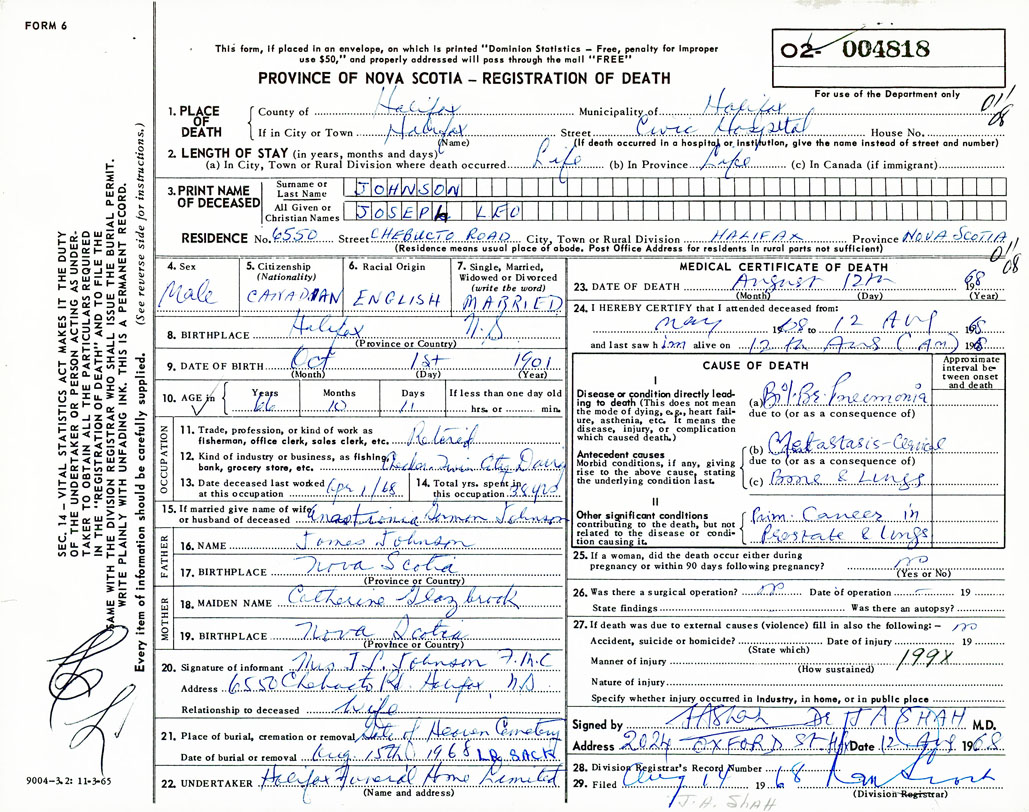 FORM 6
This form, if placed in an envelope, on which is printed "Dominion Statistics – Free, penalty for improper
use $50," and properly addressed will pass through the mail "FREE"
02- 004818
PROVINCE OF NOVA SCOTIA – REGISTRATION OF DEATH
For use of the Department only
011
08
1. PLACE OF DEATH
County of Halifax Municipality of Halifax
If in City or Town Halifax Street Civic Hospital House No.
(Name) (If death occurred in a hospital or institution, give the name instead of street and number)
2. LENGTH OF STAY (in years, months and days)
(a) In City, Town or Rural Division where death occurred Life (b) In Province Life (c) In Canada (if immigrant)
3. PRINT NAME OF DECEASED
Surname or Last Name JOHNSON
All Given or Christian Names JOSEPh LEO
RESIDENCE No. 6550 Street CHEBUCTO ROAD City, Town or Rural Division HALIFAX Province NOVA SCOTIA
(Residence means usual place of abode. Post Office Address for residents in rural parts not sufficient)
011
08
4. Sex Male
5. Citizenship (Nationality) CANADIAN
6. Racial Origin ENGLISH
7. Single, Married, Widowed or Divorced (write the word) MARRIED
8. BIRTHPLACE Halifax N.S
(Province or Country)
9. DATE OF BIRTH Oct 1st 1901
(Month) (Day) (Year)
10. AGE in Years 66 Months 10 Days 11 If less than one day old hrs. or min.
OCCUPATION
11. Trade, profession, or kind of work as fisherman, office clerk, sales clerk, etc. Retired
12. Kind of industry or business, as fishing, bank, grocery store, etc. Twin City Dairy
13. Date deceased last worked at this occupation Apr 1/68
14. Total yrs. spent in this occupation 38 yrs
15. If married give name of wife or husband of deceased Johnson
FATHER
16. NAME James Johnson
17. BIRTHPLACE Nova Scotia
(Province or Country)
MOTHER
18. MAIDEN NAME Catherine
19. BIRTHPLACE Nova Scotia
(Province or Country)
20. Signature of informant Mrs J L Johnson
Address 6550 Chebucto Rd. Halifax, NS
Relationship to deceased Wife
21. Place of burial, cremation or removal Gate of Heaven Cemetery
Date of burial or removal Aug. 15th, 1968 LR. SACK
22. UNDERTAKER Halifax Funeral Home Limited
(Name and address)
MEDICAL CERTIFICATE OF DEATH
23. DATE OF DEATH August 12th 1968
(Month) (Day) (Year)
24. I HEREBY CERTIFY that I attended deceased from:
May 1968 to 12 Aug 1968
and last saw him alive on 12th Aug (Am) 1968
CAUSE OF DEATH
Approximate interval between onset and death
I
Disease or condition directly leading to death (This does not mean the mode of dying, e.g., heart failure, asthenia, etc. It means the disease, injury, or complication which caused death.)
(a) Pneumonia
due to (or as a consequence of)
Antecedent causes
Morbid conditions, if any, giving rise to the above cause, stating the underlying condition last.
(b) Metastasis-
due to (or as a consequence of)
(c) Bone & Lungs
II
Other significant conditions contributing to the death, but not related to the disease or condition causing it.
Prim. Cancer in
Prostate & lungs
25. If a woman, did the death occur either during pregnancy or within 90 days following pregnancy? no
(Yes or No)
26. Was there a surgical operation? no Date of operation – 19
State findings Was there an autopsy?
27. If death was due to external causes (violence) fill in also the following: – no
Accident, suicide or homicide? Date of injury 19
(State which)
Manner of injury 199X
(How sustained)
Nature of injury
Specify whether injury occurred in industry, in home, or in public place
Signed by Dr J A SHAH M.D.
Address 2024 OXFORD ST Hfx Date 12 Aug 1968
28. Division Registrar's Record Number
29. Filed Aug 14 1968
(Division Registrar)
J.A. SHAH
SEC. 14 – VITAL STATISTICS ACT MAKES IT THE DUTY
OF THE UNDERTAKER OR PERSON ACTING AS UNDER-
TAKER TO OBTAIN ALL THE PARTICULARS REQUIRED
IN THE "REGISTRATION OF DEATH" AND TO FILE THE
SAME WITH THE DIVISION REGISTRAR WHO SHALL ISSUE THE BURIAL PERMIT.
WRITE PLAINLY WITH UNFADING INK. THIS IS A PERMANENT RECORD.
Every item of information should be carefully supplied. (See reverse side for instructions.)
9004-3.2: 11-3-65